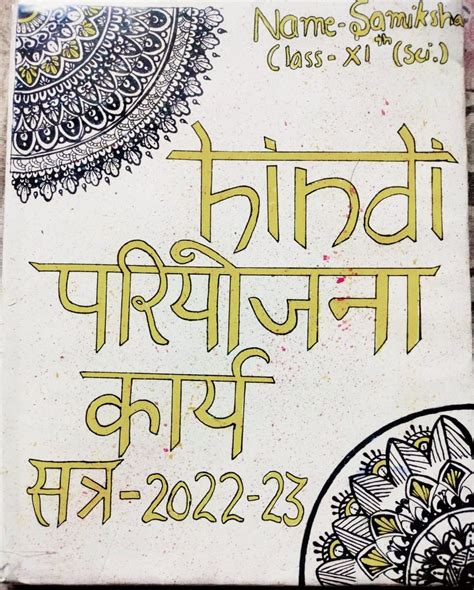 Name-Samiksha
Class-XIth (Sci.)
hindi
परियोजना
कार्य
सत्र-2022-23